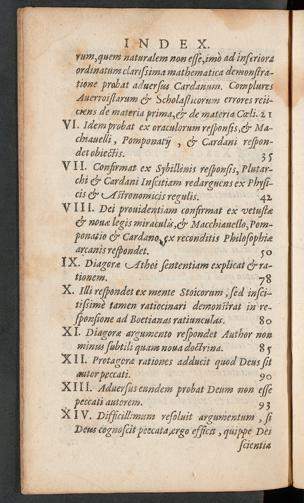 INDEX.
rum, quem naturalem non esse, imò ad inferiora
ordinatum clarissima mathematica demonstra-
tione probat aduersus Cardanum. Complures
Auerroistarum & Scholasticorum errores reii-
ciens de materia prima, & de materia Cœli. 21
VI. Idem probat ex oraculorum responsis, & Ma-
chiauelli, Pomponatij, & Cardani respon-
det obiectis. 35
VII. Confirmat ex Sybillinis responsis, Plutar-
chi & Cardani Inscitiam redarguens ex Physi-
cis & Astronomicis regulis. 42
VIII. Dei prouidentiam confirmat ex vetustæ
& nouæ legis miraculis, & Macchiauello, Pom-
ponatio & Cardano, ex reconditis Philosophiæ
arcanis respondet. 50
IX. Diagoræ Athei sententiam explicat & ra-
tionem. 78
X. Illi respondet ex mente Stoicorum, sed insci-
tissimè tamen ratiocinari demonstrat in re-
sponsione ad Boetianas ratiunculas. 80
XI. Diagoræ argumento respondet Author non
minus subtili quàm noua doctrina. 85
XII. Protagoræ rationes adducit quod Deus sit
autor peccati. 90
XIII. Aduersus eundem probat Deum non esse
peccati autorem. 93
XIV. Difficillimum resoluit argumentum, si
Deus cognoscit peccata, ergo efficit, quippe Dei
scientia